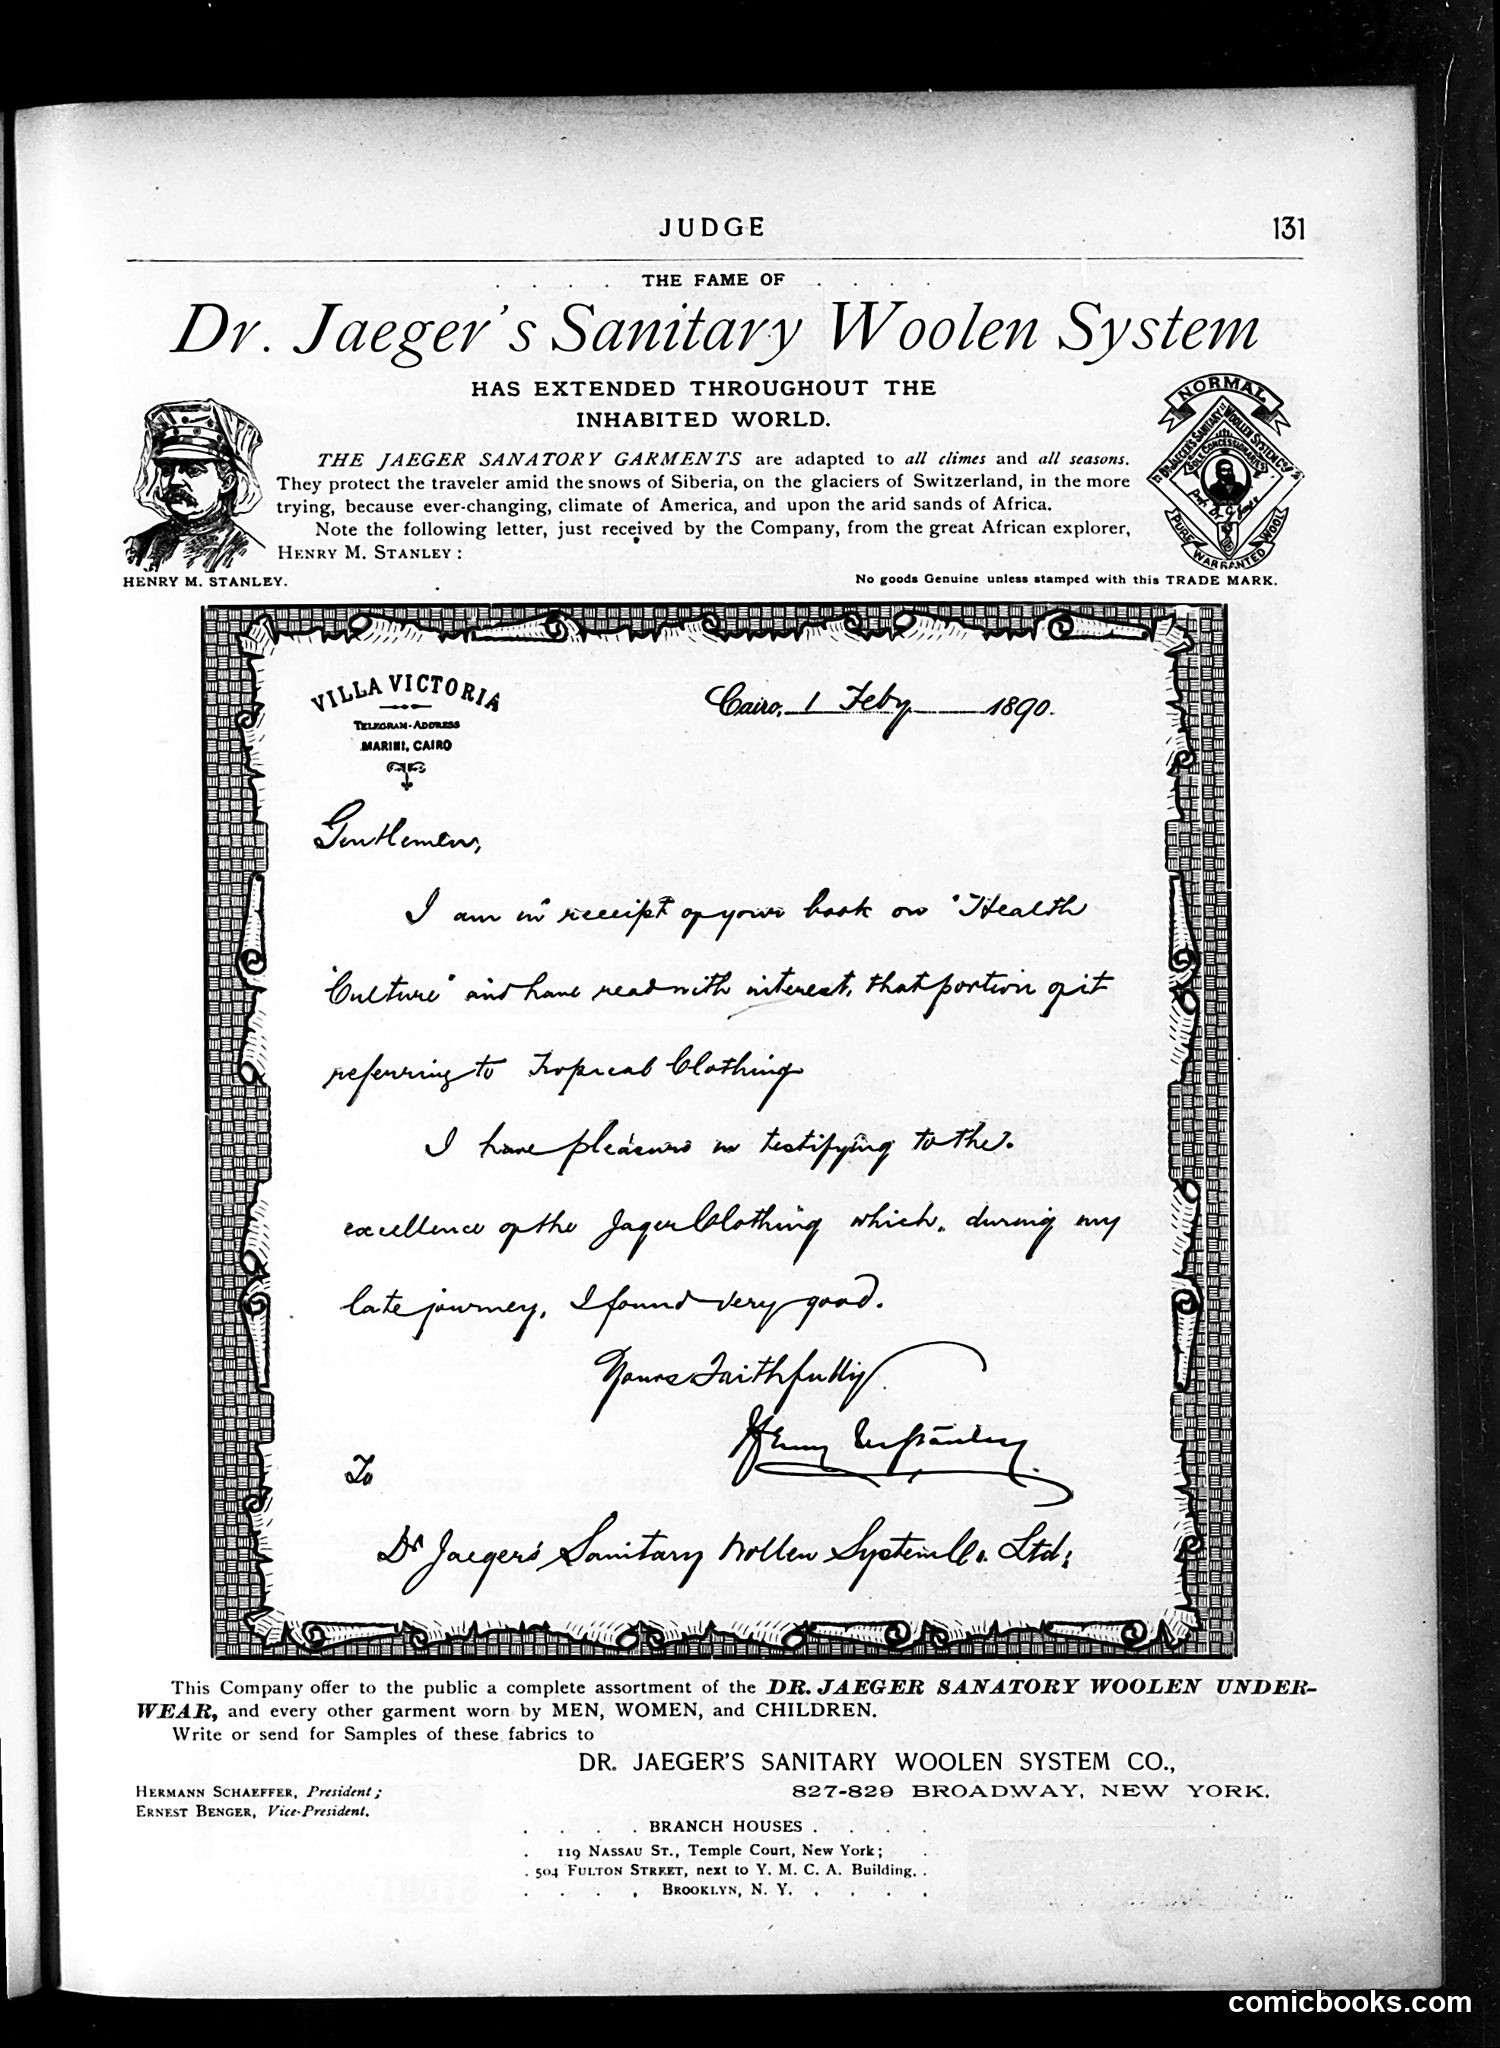 JUDGE
131
THE FAME OF
Dr. Jaeger's Sanitary Woolen System
HAS EXTENDED THROUGHOUT THE
INHABITED WORLD.
THE JAEGER SANATORY GARMENTS are adapted to all climes and all seasons.
They protect the traveler amid the snows of Siberia, on the glaciers of Switzerland, in the more
trying, because ever-changing, climate of America, and upon the arid sands of Africa.
Note the following letter, just received by the Company, from the great African explorer,
HENRY M. STANLEY:
HENRY M. STANLEY.
NORMAL
DR. JAEGER'S SANITARY WOOLEN SYSTEM CO.
SOLE CONCESSIONARIES
PURE WARRANTED WOOL
No goods Genuine unless stamped with this TRADE MARK.
VILLA VICTORIA
TELEGRAM-ADDRESS
MARINI, CAIRO
Cairo, 1 Feby 1890.
Gentlemen,
I am in receipt of your book on "Health
"Culture" and have read with interest, that portion of it
referring to Tropical Clothing
I have pleasure in testifying to the.
excellence of the Jager Clothing which, during my
late journey, I found very good.
Yours Faithfully
Henry M Stanley
To
Dr Jaeger's Sanitary Wollen System Co. Ltd;
This Company offer to the public a complete assortment of the DR. JAEGER SANATORY WOOLEN UNDER-
WEAR, and every other garment worn by MEN, WOMEN, and CHILDREN.
Write or send for Samples of these fabrics to
DR. JAEGER'S SANITARY WOOLEN SYSTEM CO.,
827-829 BROADWAY, NEW YORK.
HERMANN SCHAEFFER, President;
ERNEST BENGER, Vice-President.
BRANCH HOUSES
119 NASSAU ST., Temple Court, New York;
504 FULTON STREET, next to Y. M. C. A. Building,
BROOKLYN, N. Y.
comicbooks.com